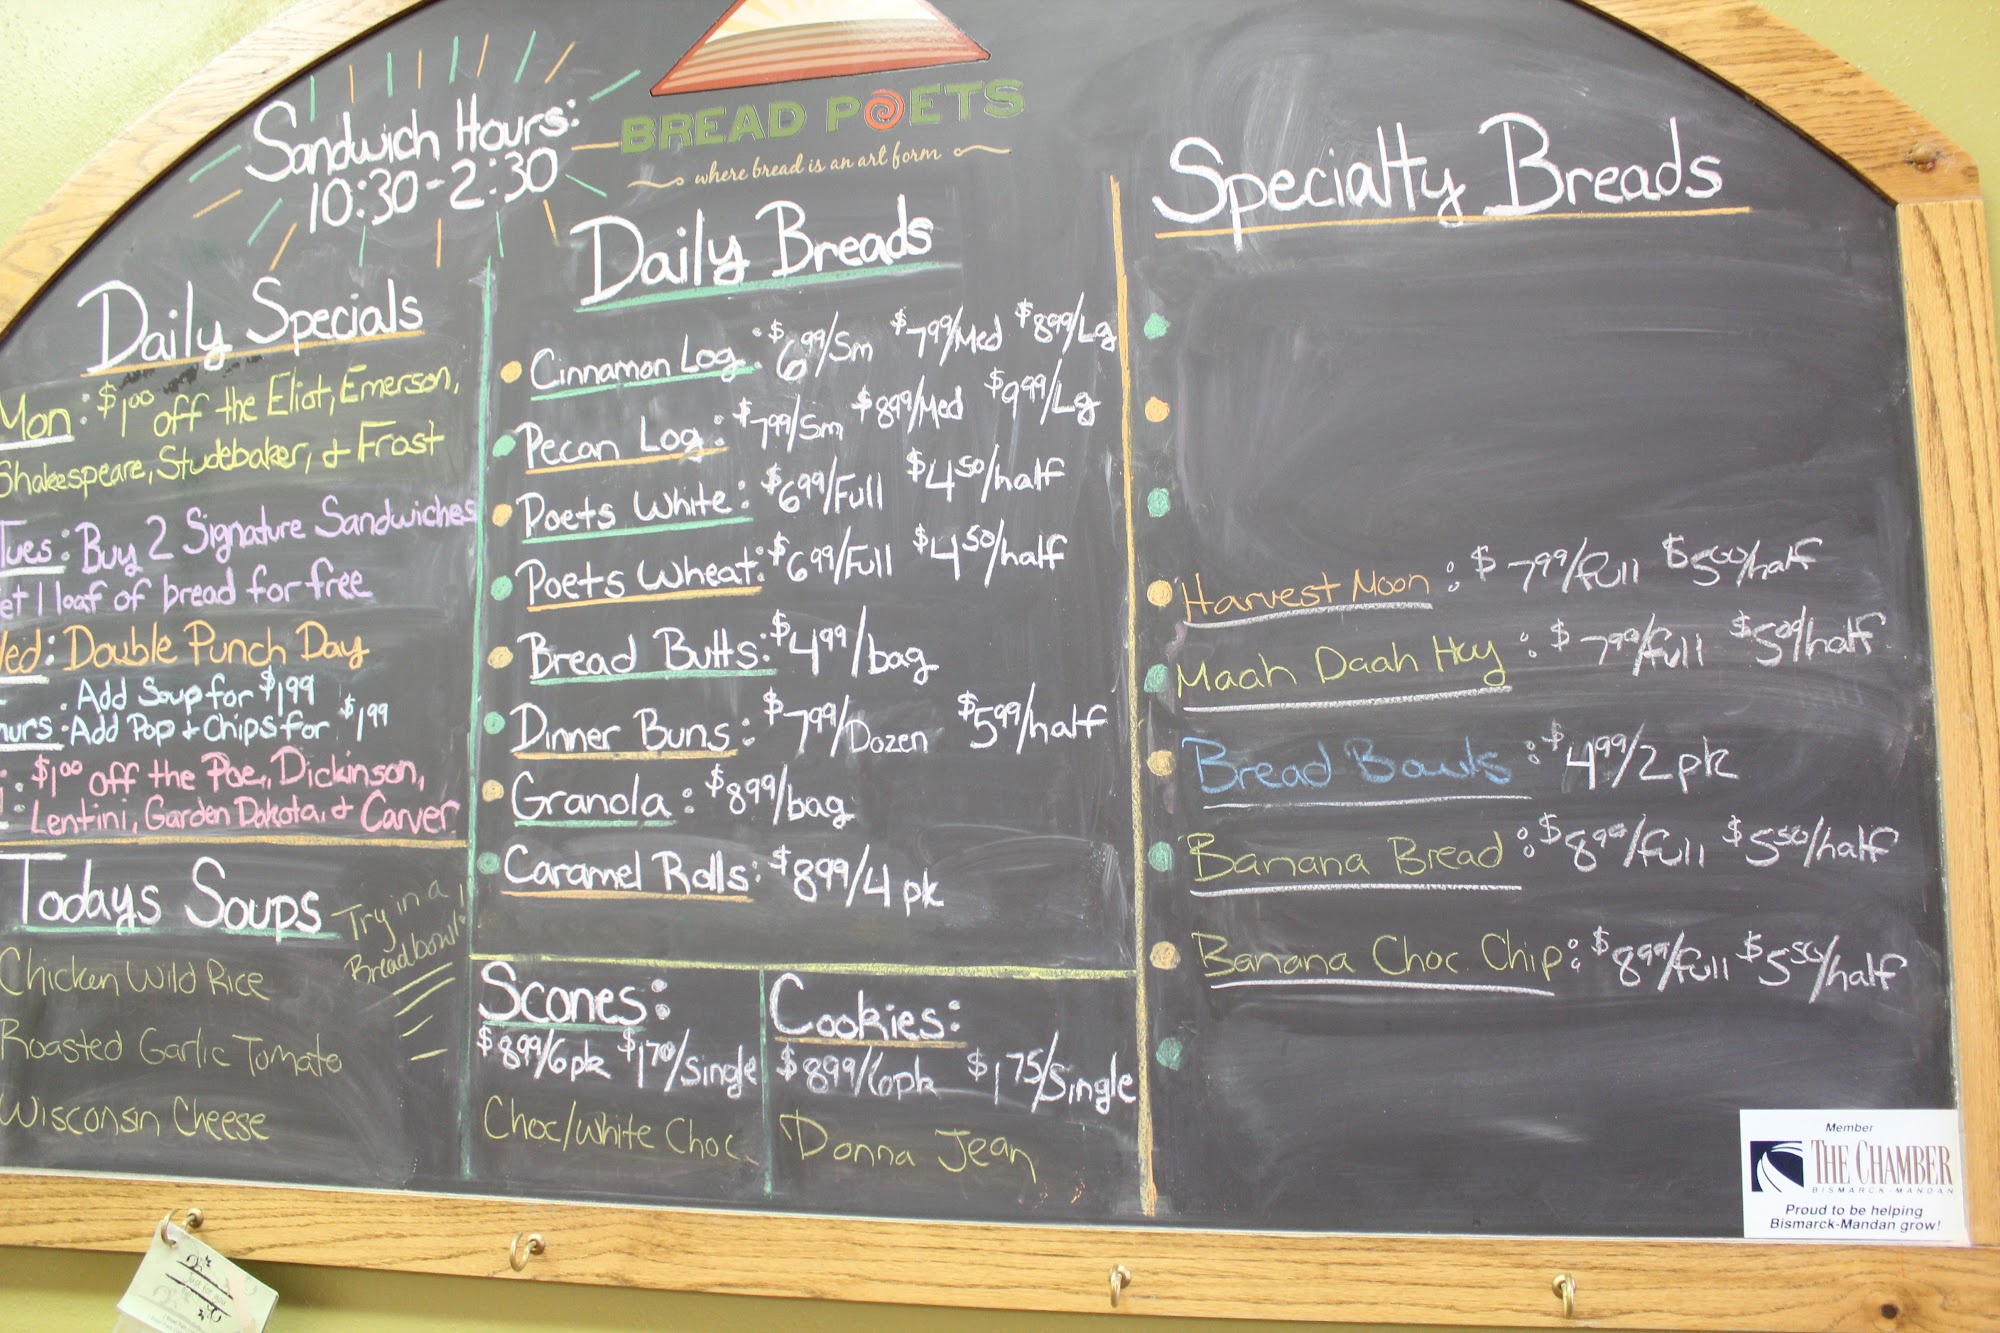 Sandwich Hours:
10:30-2:30
BREAD POETS
where bread is an art form
Daily Specials
Mon: $1.00 off the Eliot, Emerson,
Shakespeare, Studebaker, & Frost
Tues: Buy 2 Signature Sandwiches
et 1 loaf of bread for free
ed: Double Punch Day
. Add Soup for $1.99
hurs. Add Pop & Chips for $1.99
i: $1.00 off the Poe, Dickinson,
Lentini, Garden Dakota, & Carver
Todays Soups
Try in a
Breadbowl!
Chicken Wild Rice
Roasted Garlic Tomato
Wisconsin Cheese
Daily Breads
Cinnamon Log: $6.99/Sm $7.99/Med $8.99/Lg
Pecan Log: $7.99/Sm $8.99/Med $9.99/Lg
Poets White: $6.99/Full $4.50/half
Poets Wheat: $6.99/Full $4.50/half
Bread Butts: $4.99/bag
Dinner Buns: $7.99/Dozen $5.99/half
Granola: $8.99/bag
Caramel Rolls: $8.99/4 pk
Scones:
$8.99/6pk $1.70/Single
Choc/White Choc
Cookies:
$8.99/6pk $1.75/Single
Donna Jean
Specialty Breads
Harvest Moon: $7.99/full $5.00/half
Maah Daah Hey: $7.99/full $5.00/half
Bread Bowls: $4.99/2pk
Banana Bread: $8.99/full $5.50/half
Banana Choc. Chip: $8.99/full $5.50/half
Member
THE CHAMBER
BISMARCK-MANDAN
Proud to be helping
Bismarck-Mandan grow!